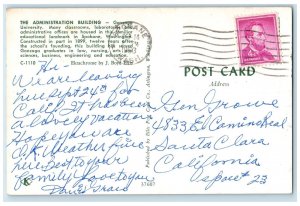 THE ADMINISTRATION BUILDING - Gonzaga
University. Many classrooms, laboratories and
administrative offices are housed in this familiar
educational landmark in Spokane, Washington.
Constructed in part in 1899, twelve years after
the school's founding, this building has served
Gonzaga graduates in law, nursing, arts and
sciences, business, engineering and education.
C-1110 Ektachrome by J. Boyd Ellis
POST CARD
Address
Hi
We are leaving
here Sept 24th for
Calif. It has been
a lovely vacation
Hope you are
O.K. weather fine
here. Best to your
family. Love to you
37687
Glen Growe
4833 El Camino Real
Santa Clara
California
space # 23